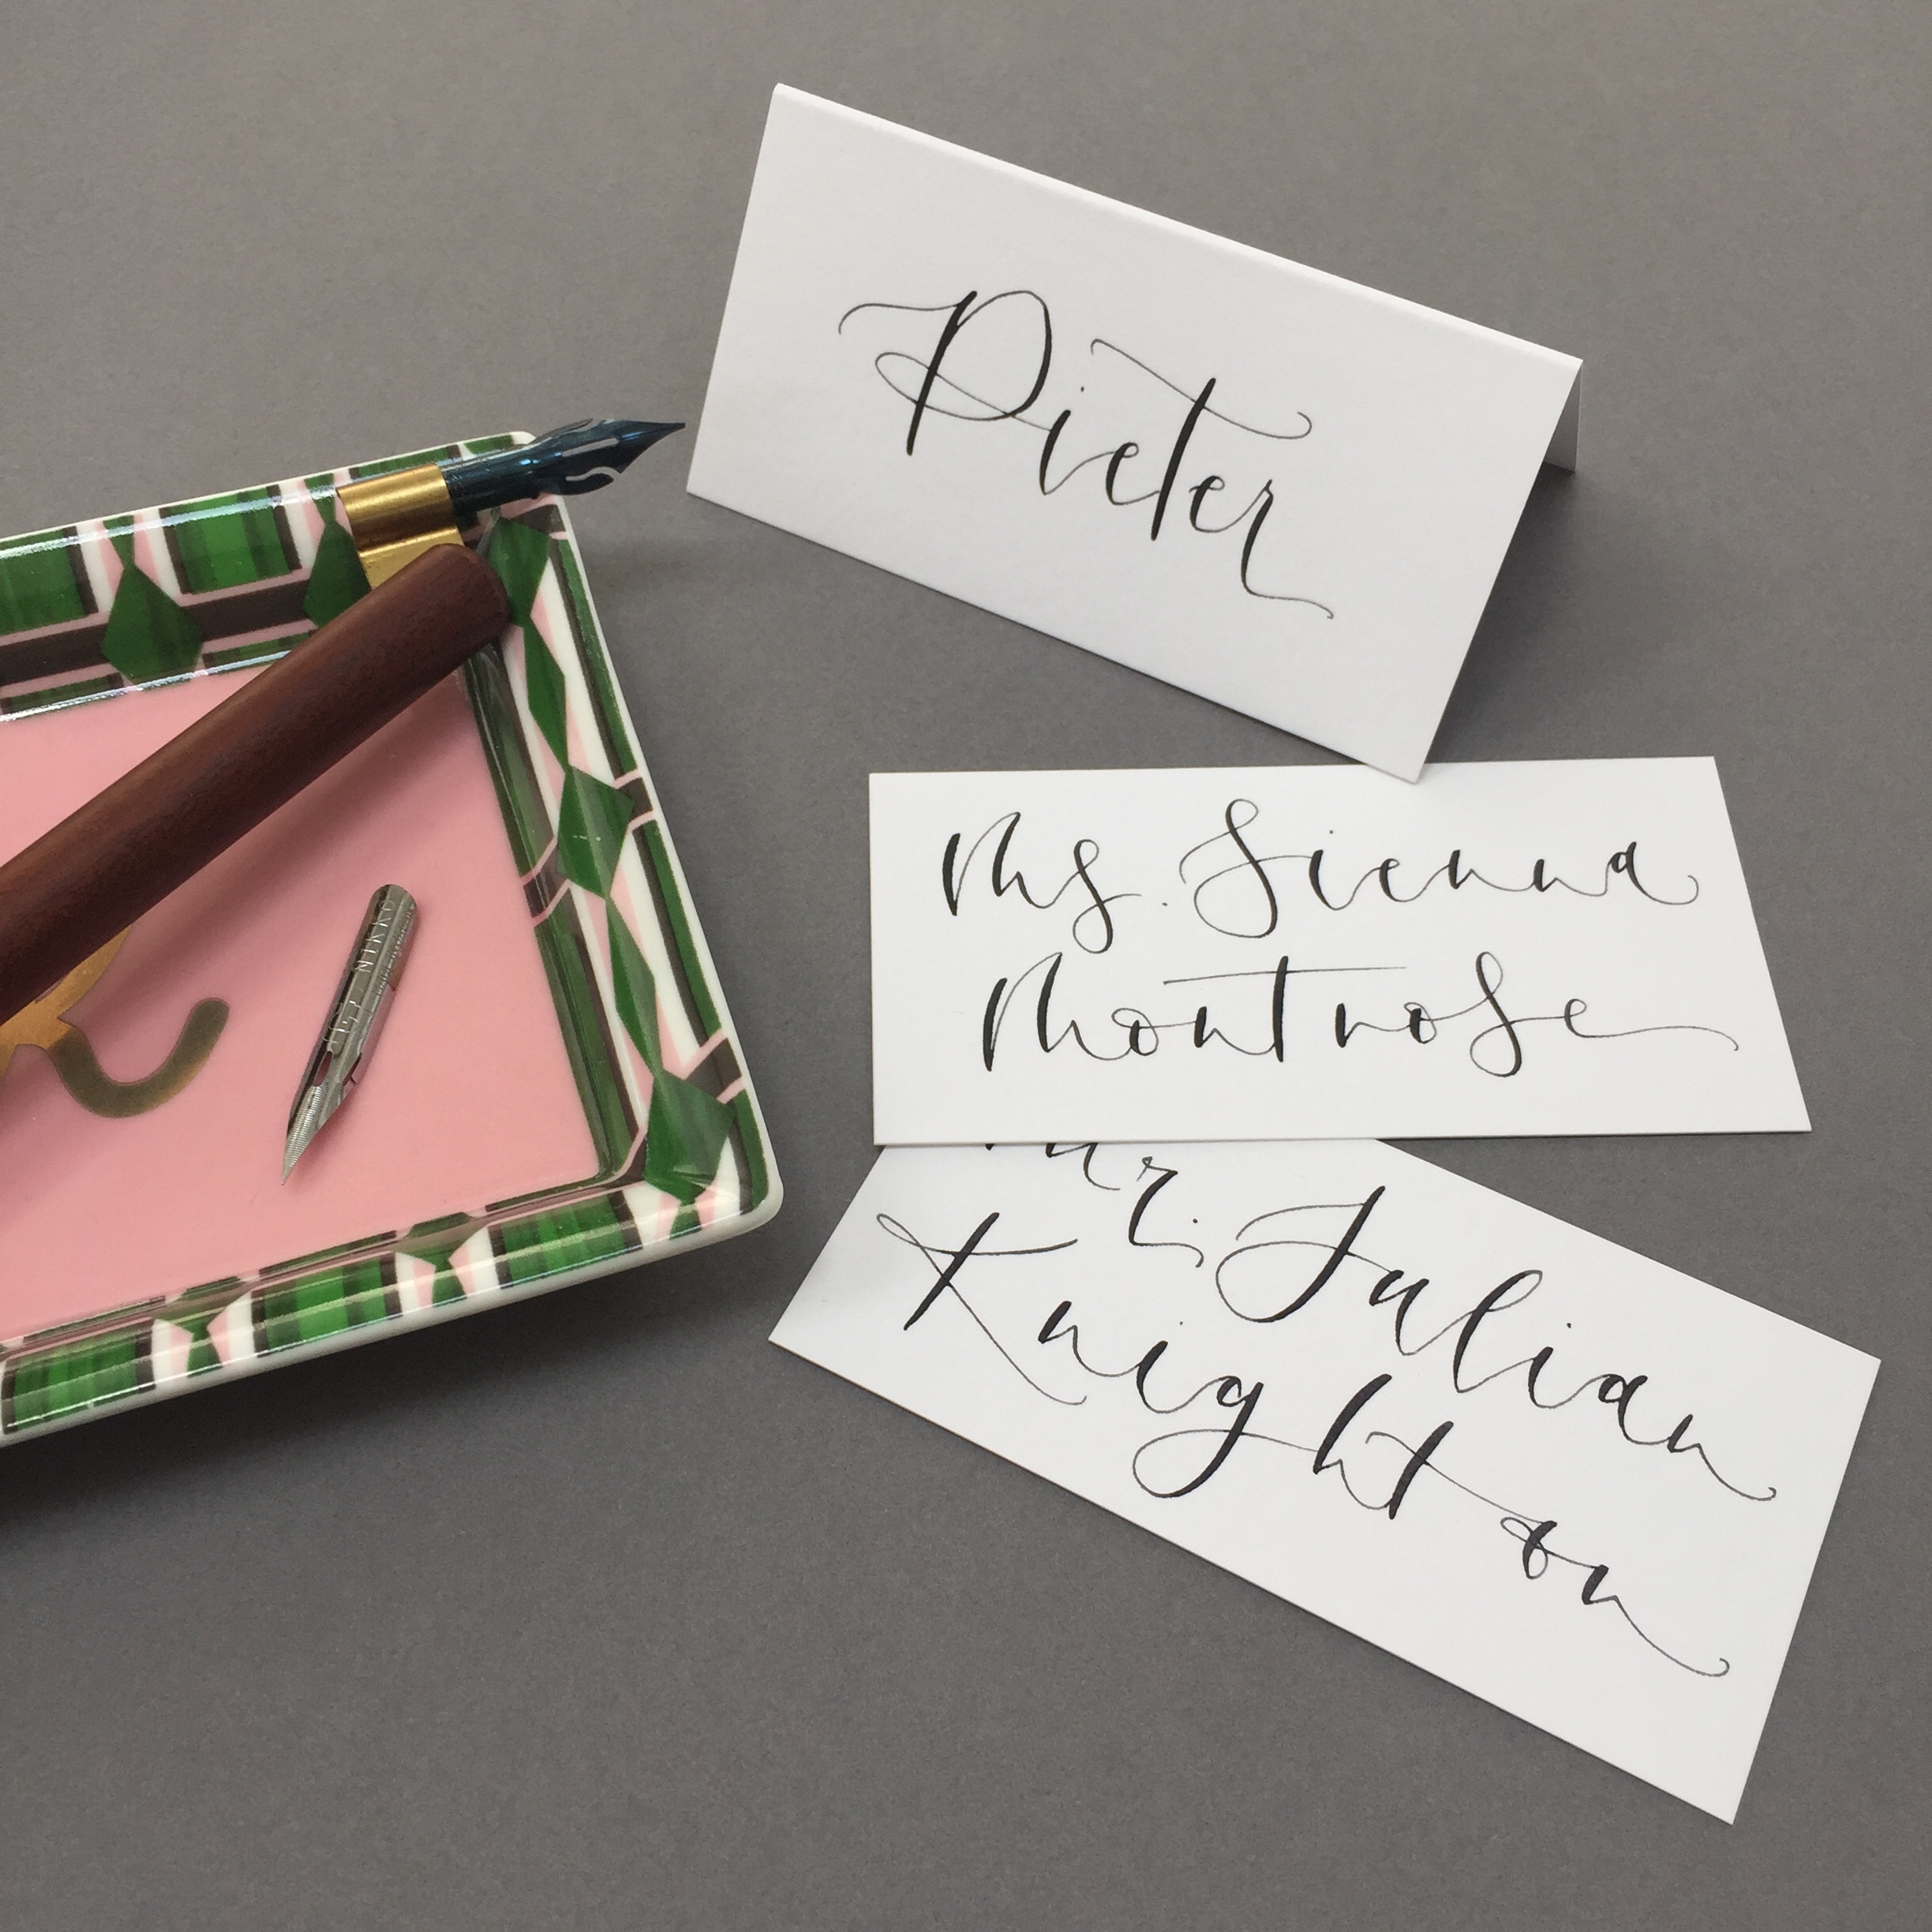 Pieter
Ms. Sienna
Montrose
Mr. Julian
Knighton
NIKKO